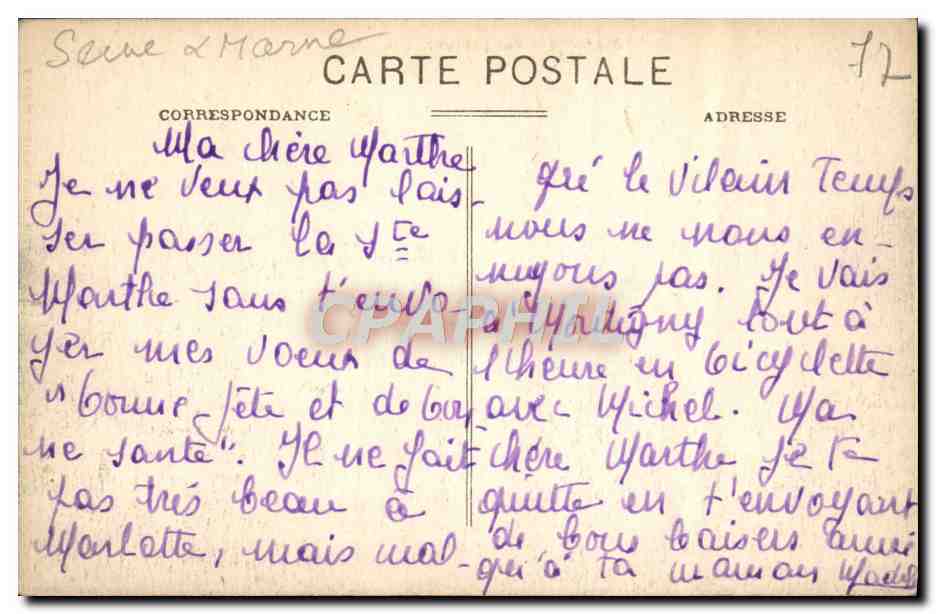 Seine & Marne
77
CARTE POSTALE
CORRESPONDANCE
ADRESSE
Ma chère Marthe
Je ne veux pas lais-
ser passer la Ste
Marthe sans t'envo-
yer mes voeux de
"bonne fête et de bon-
ne santé". Il ne fait
pas très beau à
Marlotte, mais mal-
gré le vilain Temps
nous ne nous en-
nuyons pas. Je vais
à Montigny tout à
l'heure en bicyclette
avec Michel. Ma
chère Marthe je te
quitte en t'envoyant
de bons baisers ainsi
qu'à ta maman
CPAPHIL